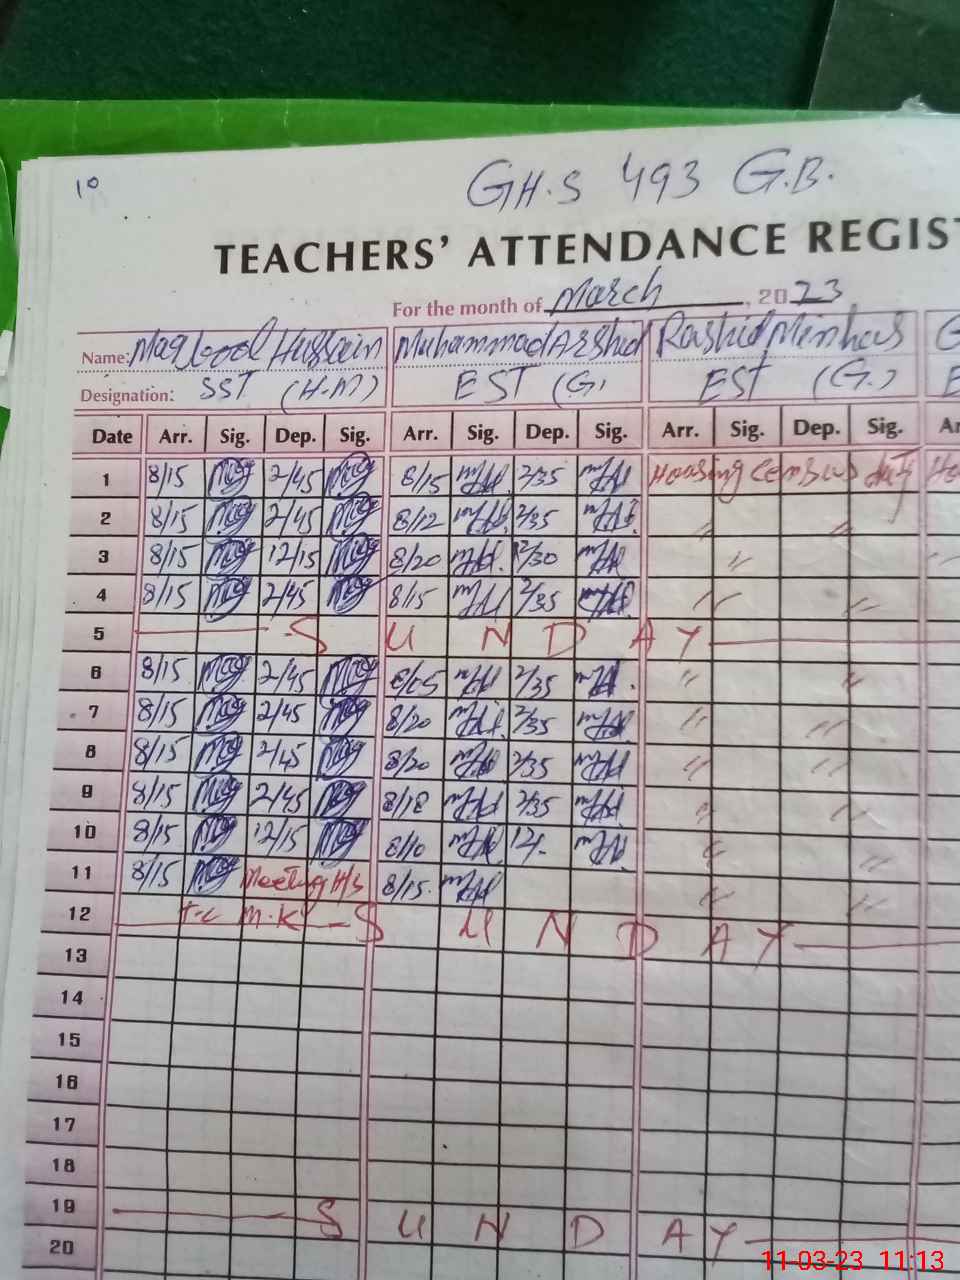 10
GH.S 493 G.B.
TEACHERS' ATTENDANCE REGIST
For the month of March, 2023
Name: Maqbool Hussain Muhammad Arshid Rashid Minhas G
Designation: SST (H.M) EST (G) EST (G.) E
Date Arr. Sig. Dep. Sig. Arr. Sig. Dep. Sig. Arr. Sig. Dep. Sig. Ar
1 8/15 2/45 8/15 2/35 Housing Census duty Ho
2 8/15 2/45 8/12 2/35 〃 〃
3 8/15 12/15 8/20 12/30 〃
4 8/15 2/45 8/15 2/35 〃 〃
5 S U N D A Y
6 8/15 2/45 8/05 2/35 〃 〃
7 8/15 2/45 8/20 2/35 〃 〃
8 8/15 2/45 8/20 2/35 〃 〃
9 8/15 2/45 8/18 2/35 〃 〃
10 8/15 12/15 8/10 12/- 〃 〃
11 8/15 Meeting H/s 8/15 〃 〃
12 M.K S U N D A Y
13
14
15
16
17
18
19 S U N D A Y
20
11-03-23 11:13